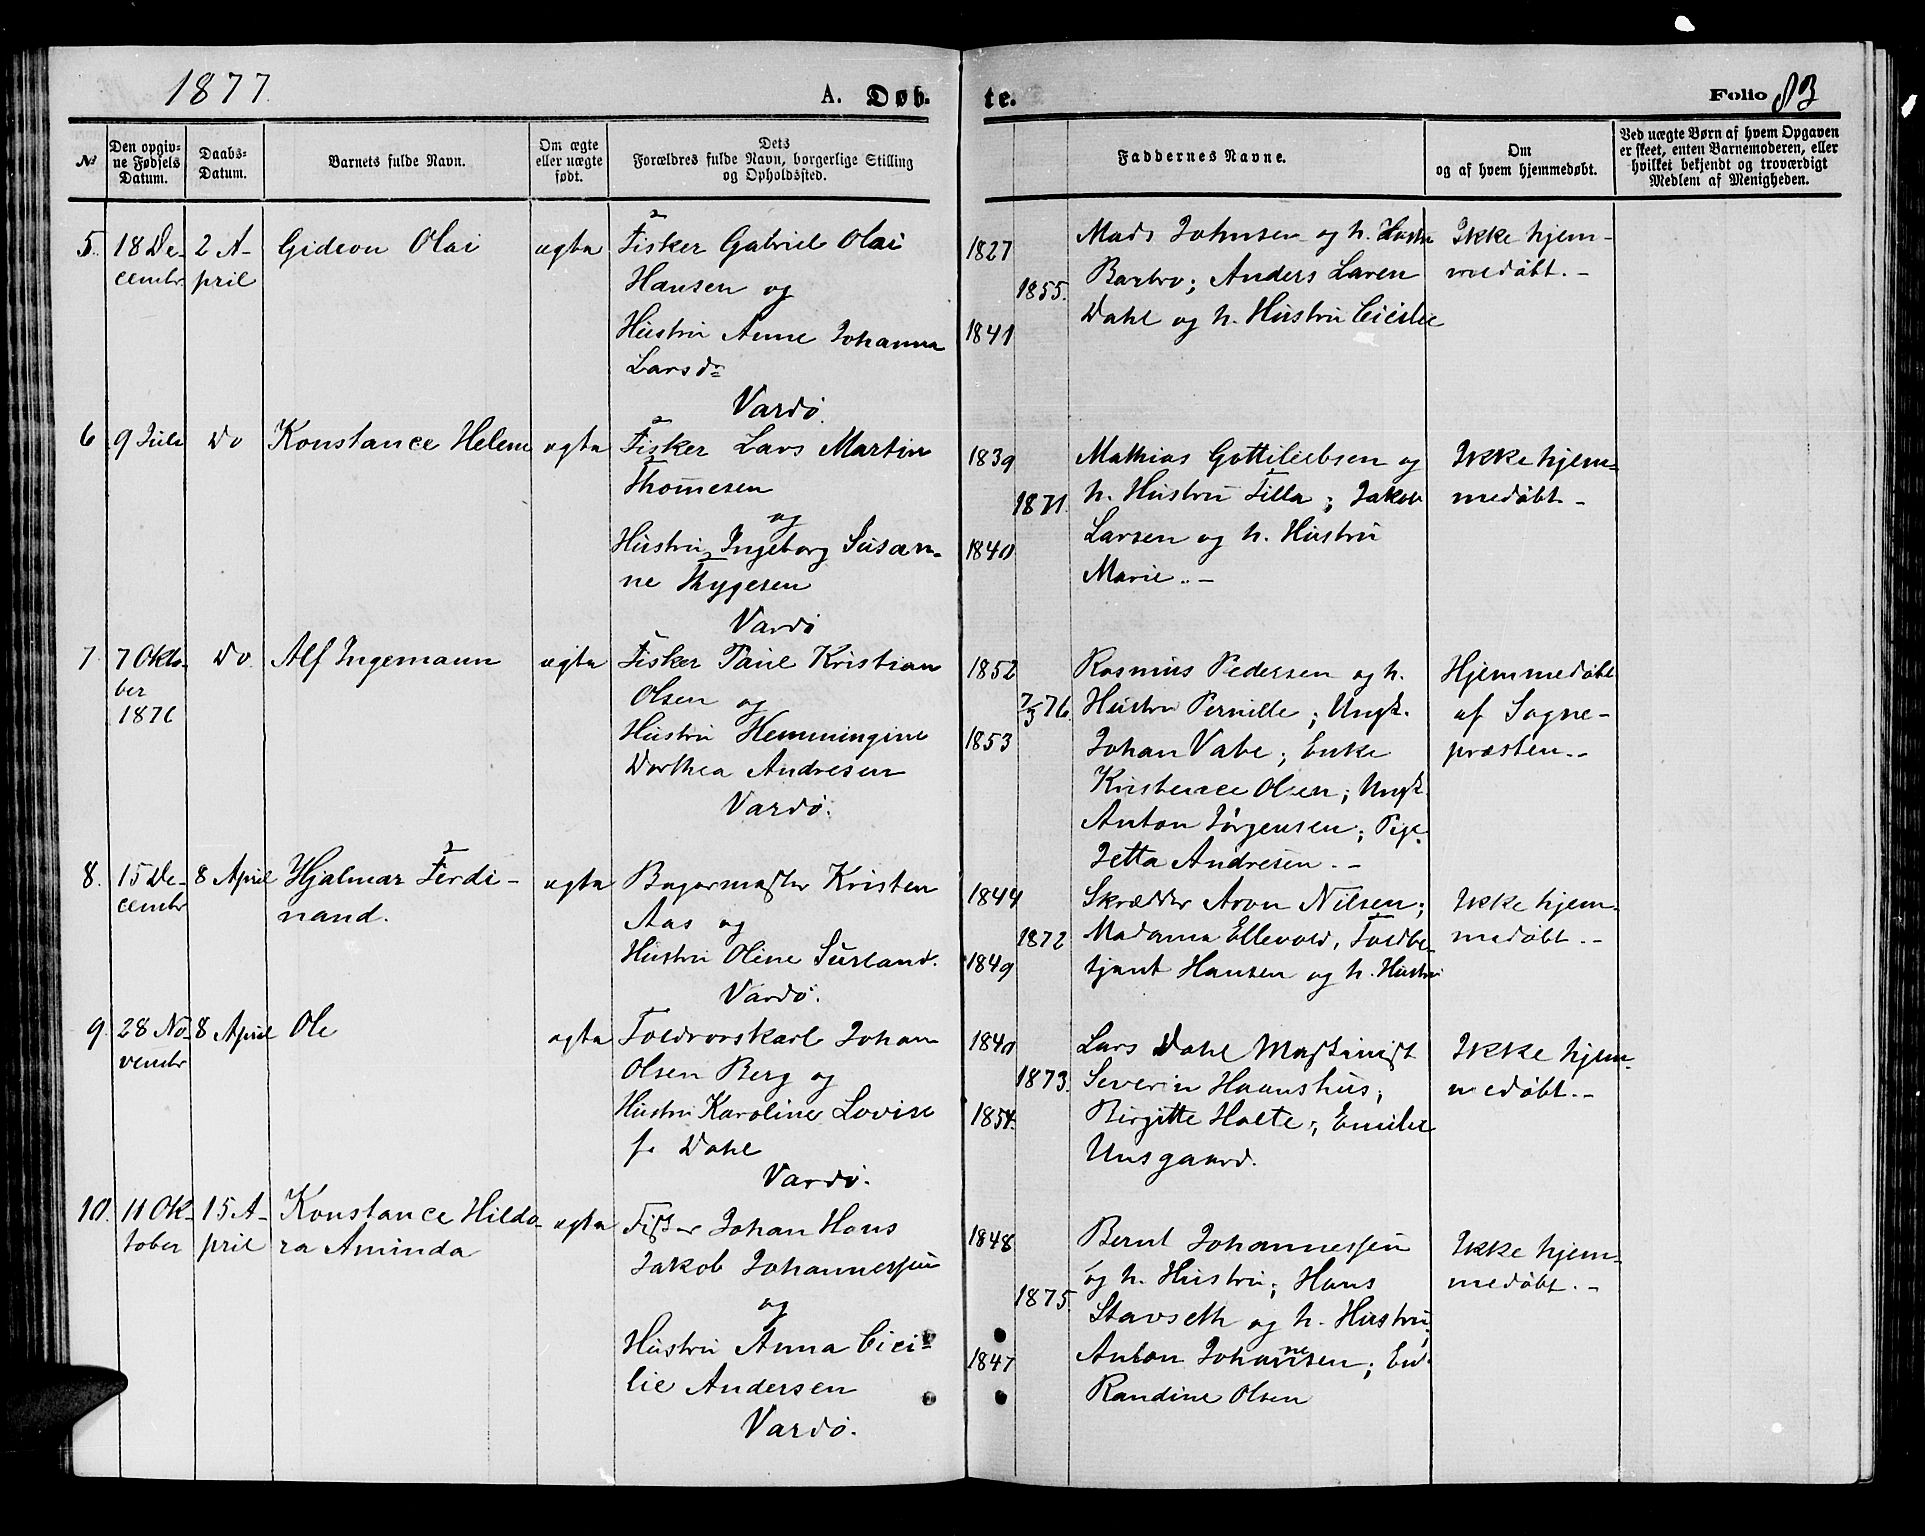 1877.
A. Døb-
te.
Folio 83
№
Den opgiv-
ne Fødsels
Datum.
Daabs-
Datum.
Barnets fulde Navn.
Om ægte
eller uægte
født.
Dets
Forældres fulde Navn, borgerlige Stilling
og Opholdssted.
Faddernes Navne.
Om
og af hvem hjemmedøbt.
Ved uægte Børn af hvem Opgaven
er skeet, enten Barnemoderen, eller
hvilket bekjendt og troværdigt
Medlem af Menigheden.
5.
18 De-
cembr
2 A-
pril
Gideon Olai
ægte
Fisker Gabriel Olai
Hansen og
Hustru Anne Johanna
Larsdr
Vardø.
1827
1855.
1841
Mads Johnsen og h. Hustru
Barbro; Anders Laren
Dahl og h. Hustru Cicilie
Ikke hjem-
medøbt. -
6
9 Juli
Do
Konstance Helene
ægte
Fisker Lars Martin
Thomesen
og
Hustru Ingeborg Susan-
ne Thygesen
Vardø
1839
1871.
1840
Mathias Gottliebsen og
h. Hustru Filla; Jakob
Larsen og h. Hustru
Marie. -
Ikke hjem-
medøbt -
7.
7 Okto-
ber
1876
Do.
Alf Ingemann
ægte
Fisker Paul Kristian
Olsen og
Hustru Hemmingine
Dorthea Andresen
Vardø.
1852
7/3 76.
1853
Rasmus Pedersen og h.
Hustru Pernille; Ungk.
Johan Vabe; Enke
Kristence Olsen; Ungk.
Anton Jørgensen; Pige
Jetta Andresen. -
Hjemmedøbt
af Sogne-
præsten. -
8.
15 De-
cembr
8 April
Hjalmar Ferdi-
nand.
ægte
Bagermester Kristen
Aas og
Hustru Oline Surland.
Vardø.
1844
1872
1849
Skrædder Aron Nilsen;
Madama Ellevold, Toldbe-
tjent Hansen og h. Hustru
Ikke hjem-
medøbt. -
9.
28 No-
vembr
8 April
Ole
ægte
Toldrorskarl Johan
Olsen Berg og
Hustru Karoline Lovise
f. Dahl
Vardø.
1840
1873.
1854.
Lars Dahl Maskinist
Severin Haanshus;
Birgitte Holte; Emilie
Unsgaard.
Ikke hjem-
medøbt. -
10.
11 Ok-
tober
15 A-
pril
Konstance Hildo-
ra Aminda
ægte
Fisker Johan Hans
Jakob Johannessen
og
Hustru Anna Cici-
lie Andersen
Vardø.
1848
1875.
1847
Bernt Johannessen
og h. Hustru; Hans
Stavseth og h. Hustru;
Anton Johannesen; En.
Randine Olsen
Ikke hjem-
medøbt. -